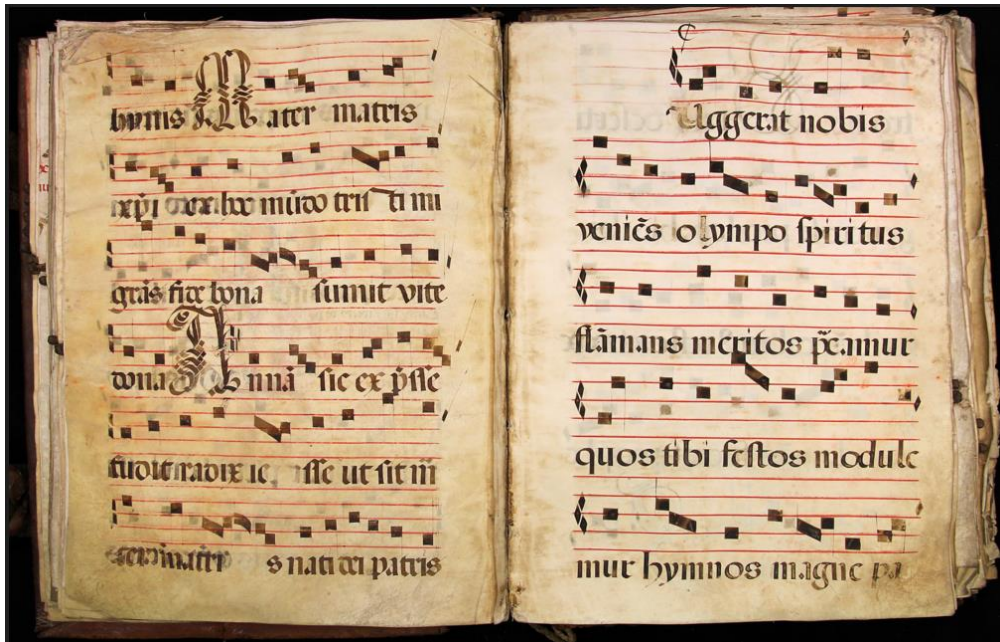 bymis Mater matris
xp̄i exibo mūdo tris ti mi
grās fice bona sumit vite
dona Annā sic ex p̄sse
fudit radix ie sse ut sit m̄
mater s nati dei patris
Aggerat nobis
veniēs olympo spiritus
flāmans meritos p̄camur
quos tibi festos module
mur hymnos magne pa